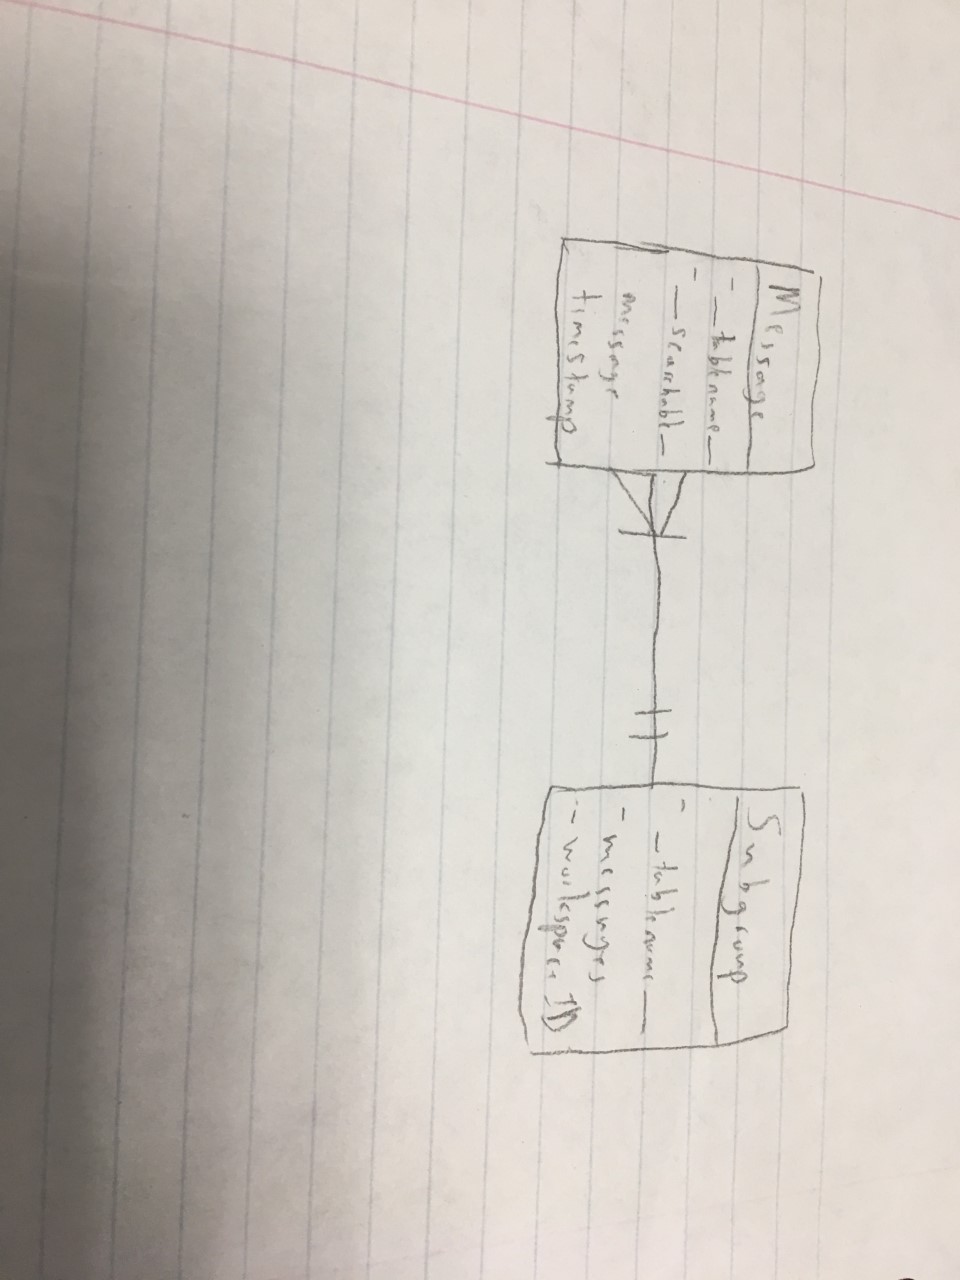 Message
- __tablename__
- __searchable__
message
timestamp
Subgroup
- __tablename__
- messages
- workspace ID